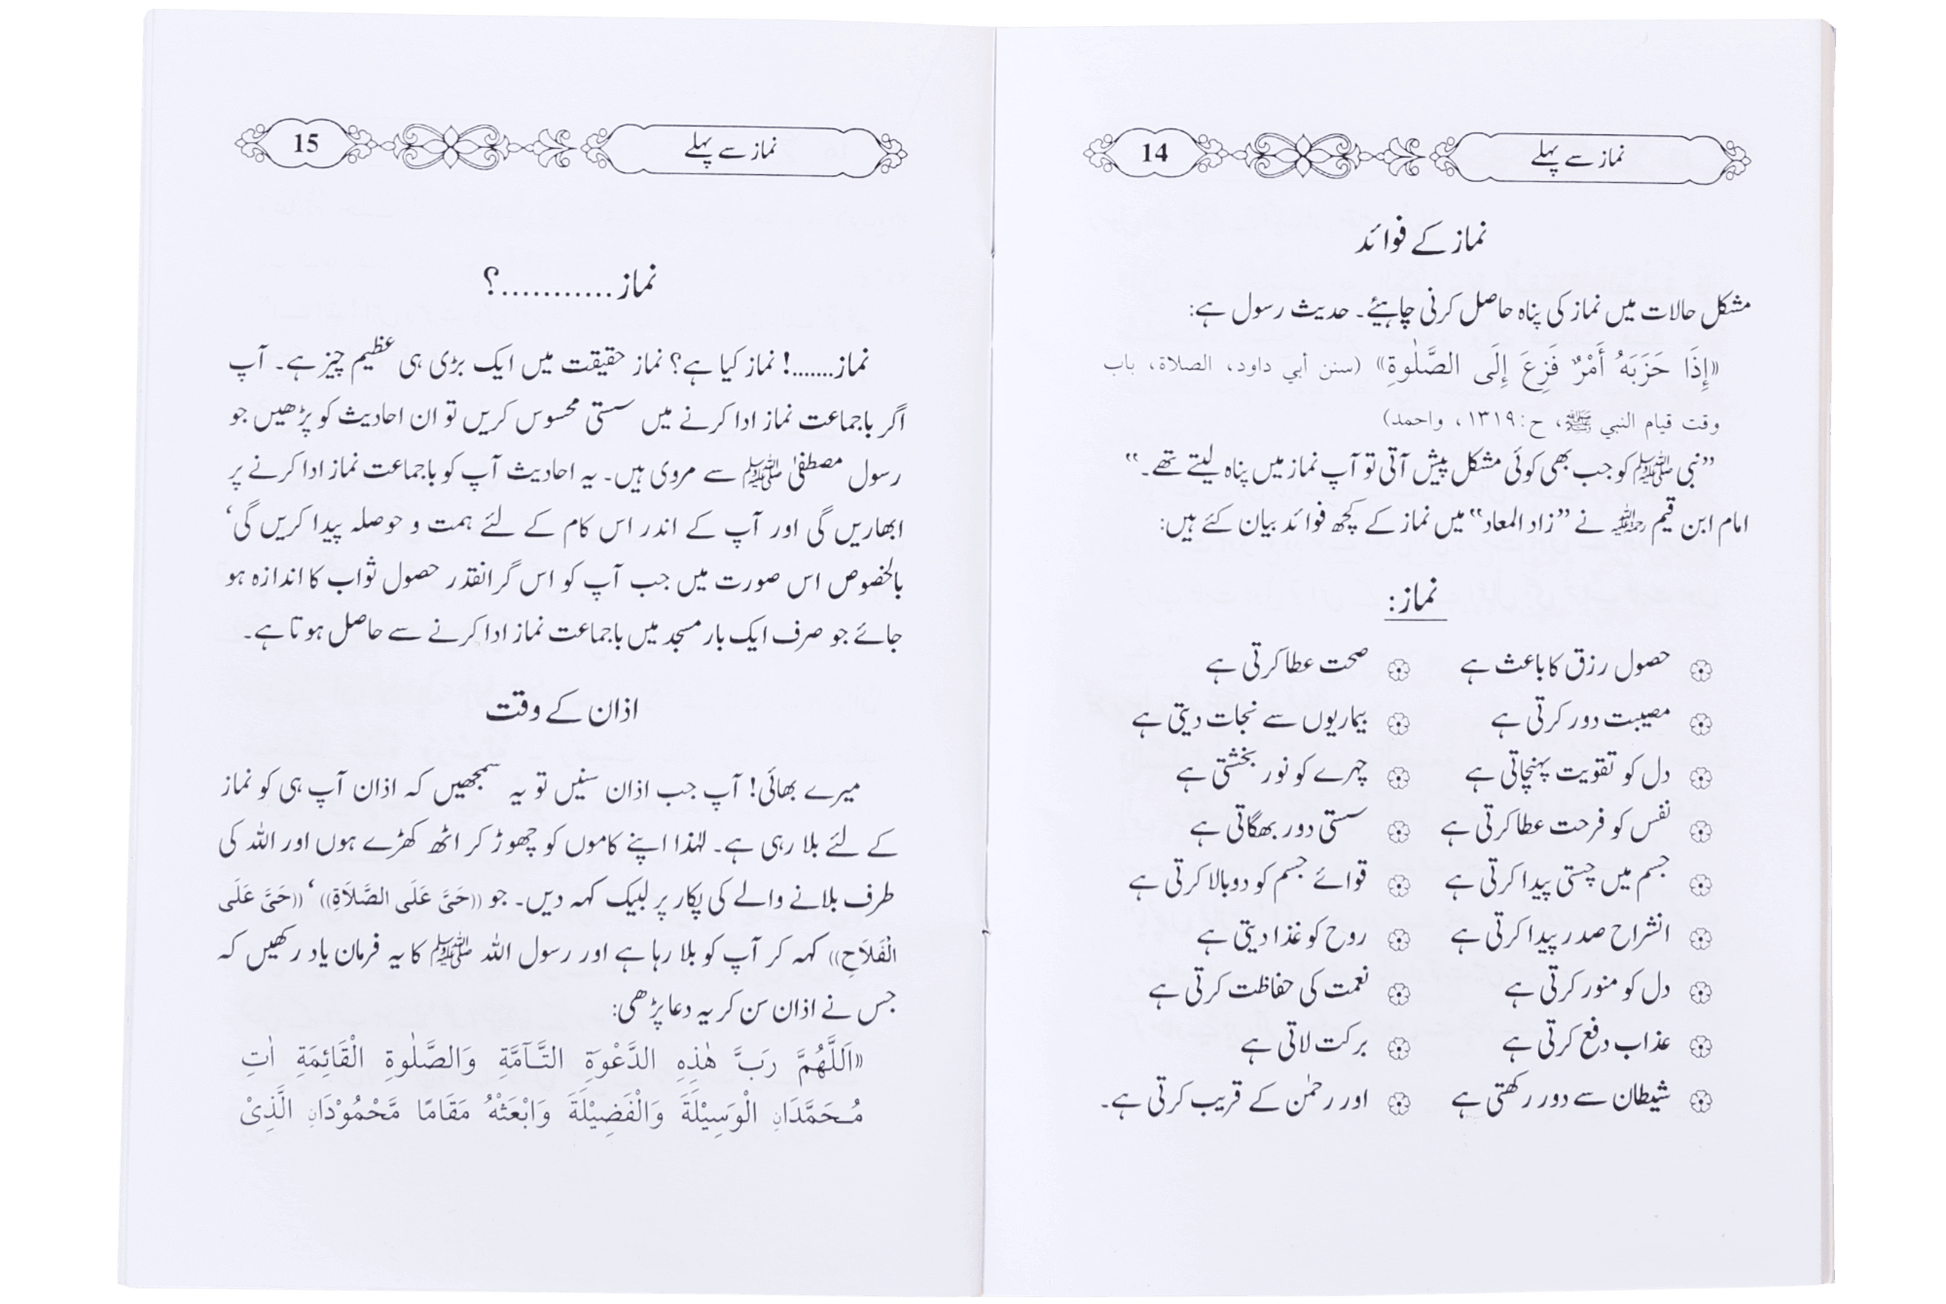 نماز سے پہلے 14
نماز کے فوائد
مشکل حالات میں نماز کی پناہ حاصل کرنی چاہیئے۔ حدیث رسول ہے:
«إِذَا حَزَبَهُ أَمْرٌ فَزِعَ إِلَى الصَّلٰوةِ» (سنن أبي داود، الصلاة، باب
وقت قيام النبي ﷺ، ح:۱۳۱۹، واحمد)
”نبی ﷺ کو جب بھی کوئی مشکل پیش آتی تو آپ نماز میں پناہ لیتے تھے۔“
امام ابن قیم رحمہ اللہ نے ”زاد المعاد“ میں نماز کے کچھ فوائد بیان کئے ہیں:
نماز:
حصول رزق کا باعث ہے صحت عطا کرتی ہے
مصیبت دور کرتی ہے بیماریوں سے نجات دیتی ہے
دل کو تقویت پہنچاتی ہے چہرے کو نور بخشتی ہے
نفس کو فرحت عطا کرتی ہے سستی دور بھگاتی ہے
جسم میں چستی پیدا کرتی ہے قوائے جسم کو دوبالا کرتی ہے
انشراح صدر پیدا کرتی ہے روح کو غذا دیتی ہے
دل کو منور کرتی ہے نعمت کی حفاظت کرتی ہے
عذاب دفع کرتی ہے برکت لاتی ہے
شیطان سے دور رکھتی ہے اور رحمٰن کے قریب کرتی ہے۔
نماز سے پہلے 15
نماز...........؟
نماز.......! نماز کیا ہے؟ نماز حقیقت میں ایک بڑی ہی عظیم چیز ہے۔ آپ
اگر باجماعت نماز ادا کرنے میں سستی محسوس کریں تو ان احادیث کو پڑھیں جو
رسول مصطفیٰ ﷺ سے مروی ہیں۔ یہ احادیث آپ کو باجماعت نماز ادا کرنے پر
ابھاریں گی اور آپ کے اندر اس کام کے لئے ہمت و حوصلہ پیدا کریں گی‘
بالخصوص اس صورت میں جب آپ کو اس گرانقدر حصول ثواب کا اندازہ ہو
جائے جو صرف ایک بار مسجد میں باجماعت نماز ادا کرنے سے حاصل ہوتا ہے۔
اذان کے وقت
میرے بھائی! آپ جب اذان سنیں تو یہ سمجھیں کہ اذان آپ ہی کو نماز
کے لئے بلا رہی ہے۔ لہٰذا اپنے کاموں کو چھوڑ کر اٹھ کھڑے ہوں اور اللہ کی
طرف بلانے والے کی پکار پر لبیک کہہ دیں۔ جو ((حَیَّ عَلَی الصَّلاَۃِ))‘ ((حَیَّ عَلَی
الْفَلاَحِ)) کہہ کر آپ کو بلا رہا ہے اور رسول اللہ ﷺ کا یہ فرمان یاد رکھیں کہ
جس نے اذان سن کر یہ دعا پڑھی:
«اَللَّهُمَّ رَبَّ هٰذِهِ الدَّعْوَةِ التَّآمَّةِ وَالصَّلٰوةِ الْقَائِمَةِ اٰتِ
مُحَمَّدَانِ الْوَسِيْلَةَ وَالْفَضِيْلَةَ وَابْعَثْهُ مَقَامًا مَّحْمُوْدَانِ الَّذِيْ